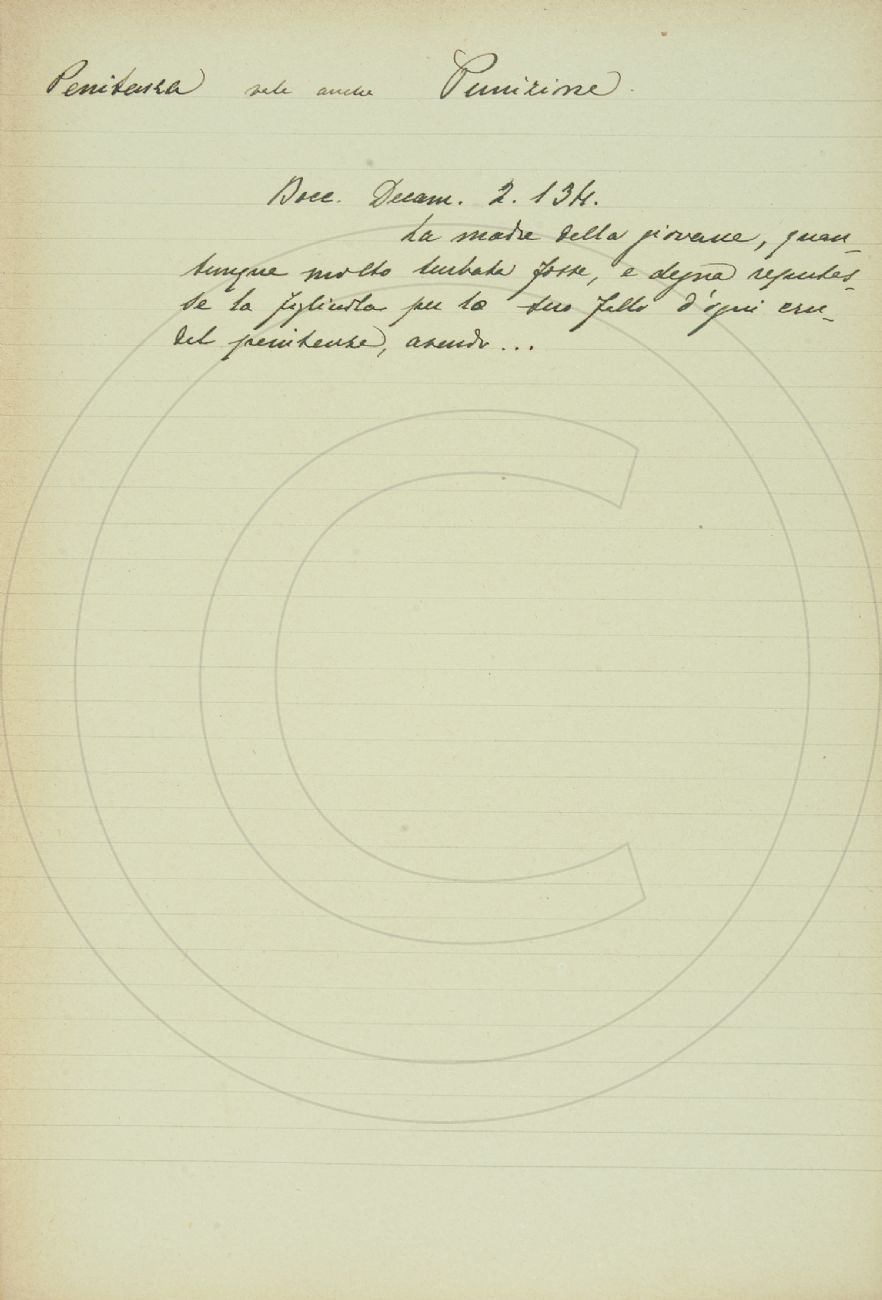 Penitenza vale anche Punizione.
Bocc. Decam. 2. 134.
La madre della giovane, quan-
tunque molto turbata fosse, e degna reputas-
se la figliuola per lo suo fallo d'ogni cru-
del penitenza, avendo...